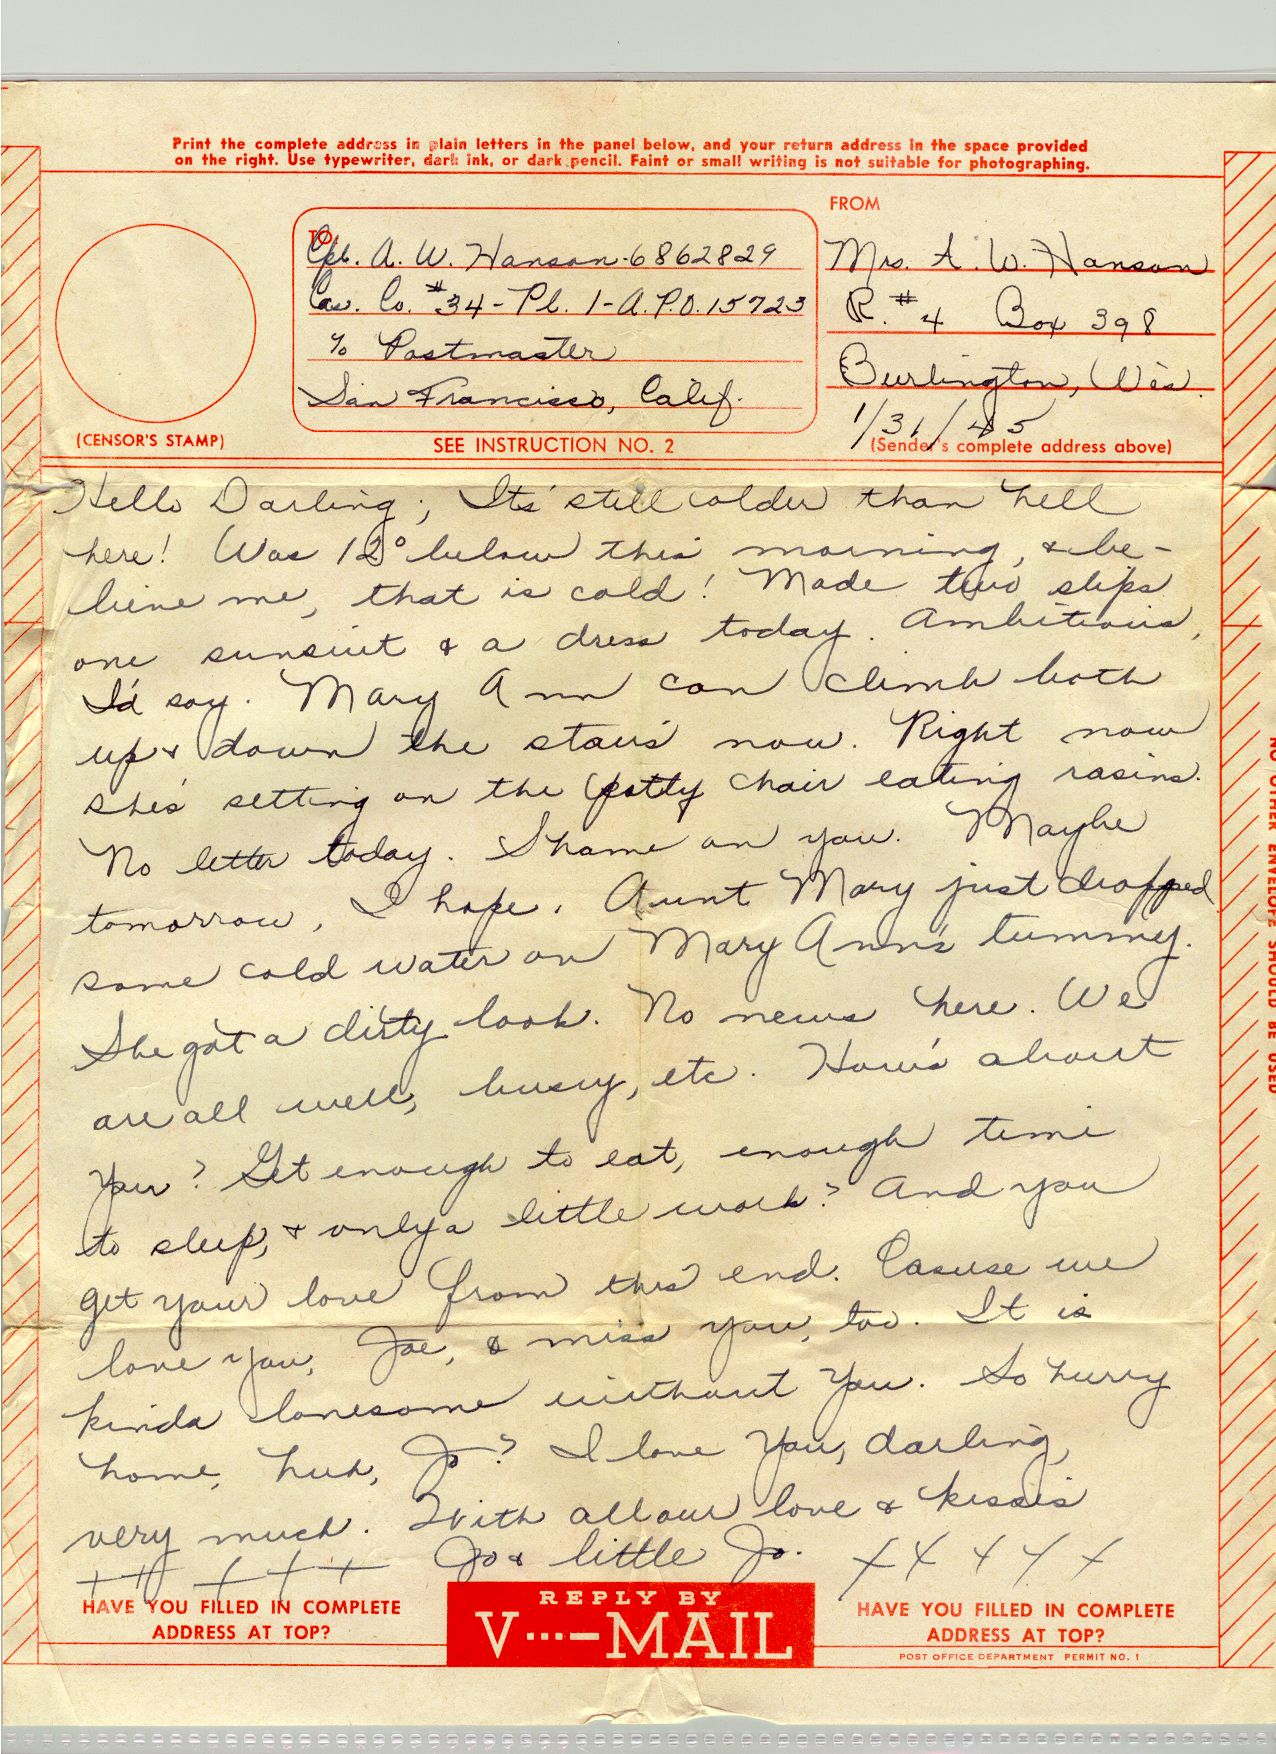 Print the complete address in plain letters in the panel below, and your return address in the space provided
on the right. Use typewriter, dark ink, or dark pencil. Faint or small writing is not suitable for photographing.
FROM
TO
Cpl. A. W. Hanson-6862829
Cas. Co. #34-Pl. 1-A.P.O. 15723
% Postmaster
San Francisco, Calif.
Mrs. A. W. Hanson
R. #4 Box 398
Burlington, Wis.
1/31/45
(CENSOR'S STAMP)
SEE INSTRUCTION NO. 2
(Sender's complete address above)
Hello Darling; Its' still colder than hell
here! Was 12° below this morning, & be-
lieve me, that is cold! Made two slips
one sunsuit & a dress today. Ambitious,
I'd say. Mary Ann can climb both
up & down the stairs now. Right now
she's setting on the potty chair eating rasins.
No letter today. Shame on you. Maybe
tomorrow, I hope. Aunt Mary just dropped
some cold water on Mary Ann's tummy.
She got a dirty look. No news here. We
are all well, busy, etc. How's about
you? Get enough to eat, enough time
to sleep, & only a little work? And you
get your love from this end. Casuse we
love you, Joe, & miss you, too. It is
kinda lonesome without you. So hurry
home, huh, Jo? I love you, darling,
very much. With all our love & kisses
++ + + + Jo & little Jo. x x x x x
HAVE YOU FILLED IN COMPLETE
ADDRESS AT TOP?
REPLY BY
V···—MAIL
HAVE YOU FILLED IN COMPLETE
ADDRESS AT TOP?
POST OFFICE DEPARTMENT PERMIT NO. 1
NO OTHER ENVELOPE SHOULD BE USED